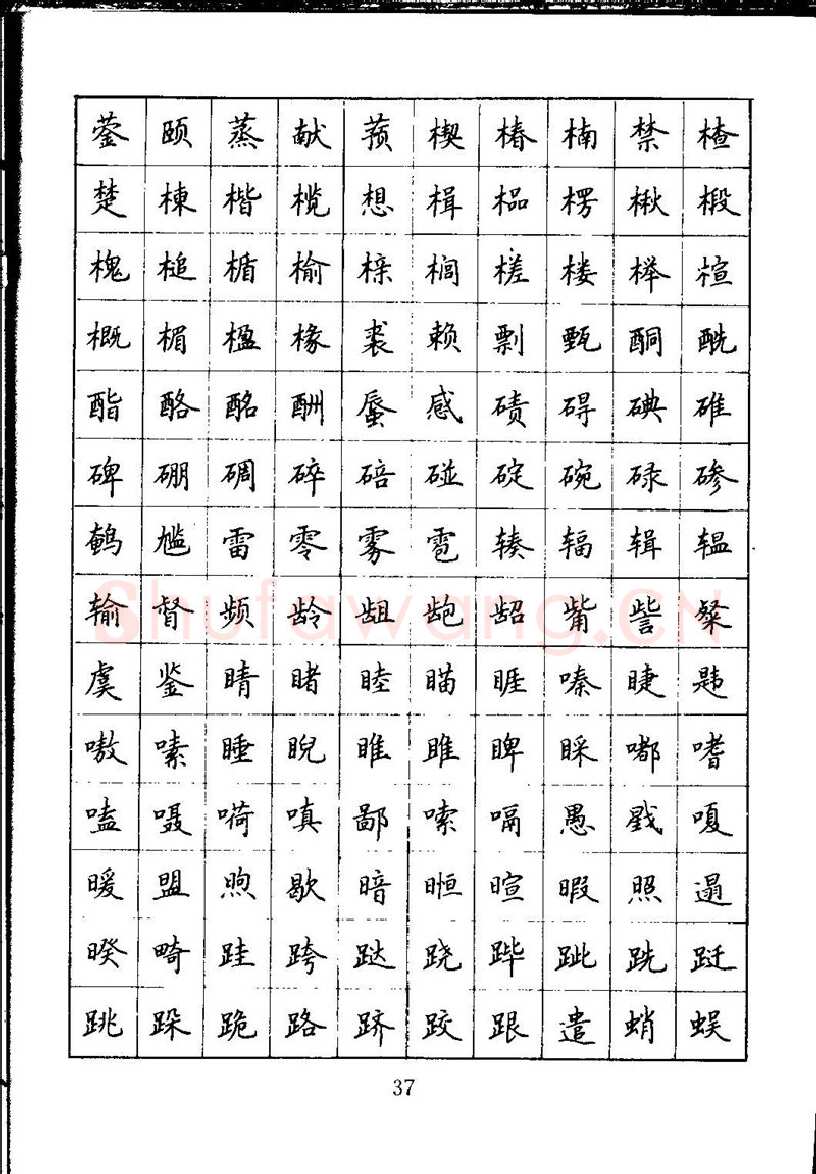 蓥 颐 蒸 献 蓣 楔 椿 楠 禁 楂
楚 楝 楷 榄 想 楫 榀 楞 楸 椴
槐 槌 楯 榆 榇 榈 槎 楼 榉 楦
概 楣 楹 椽 裘 赖 剽 甄 酮 酰
酯 酪 酩 酬 蜃 感 碛 碍 碘 碓
碑 硼 碉 碎 碚 碰 碇 碗 碌 碜
鹌 尴 雷 零 雾 雹 辏 辐 辑 辒
输 督 频 龄 龃 龅 龆 觜 訾 粲
虞 鉴 睛 睹 睦 瞄 睚 嗪 睫 韪
嗷 嗉 睡 睨 睢 雎 睥 睬 嘟 嗜
嗑 嗫 嗬 嗔 鄙 嗦 嗝 愚 戥 嗄
暖 盟 煦 歇 暗 暅 暄 暇 照 遢
暌 畸 跬 跨 跶 跷 跸 跐 跣 跹
跳 跺 跪 路 跻 跤 跟 遣 蛸 蜈
37
Shufawang.CN